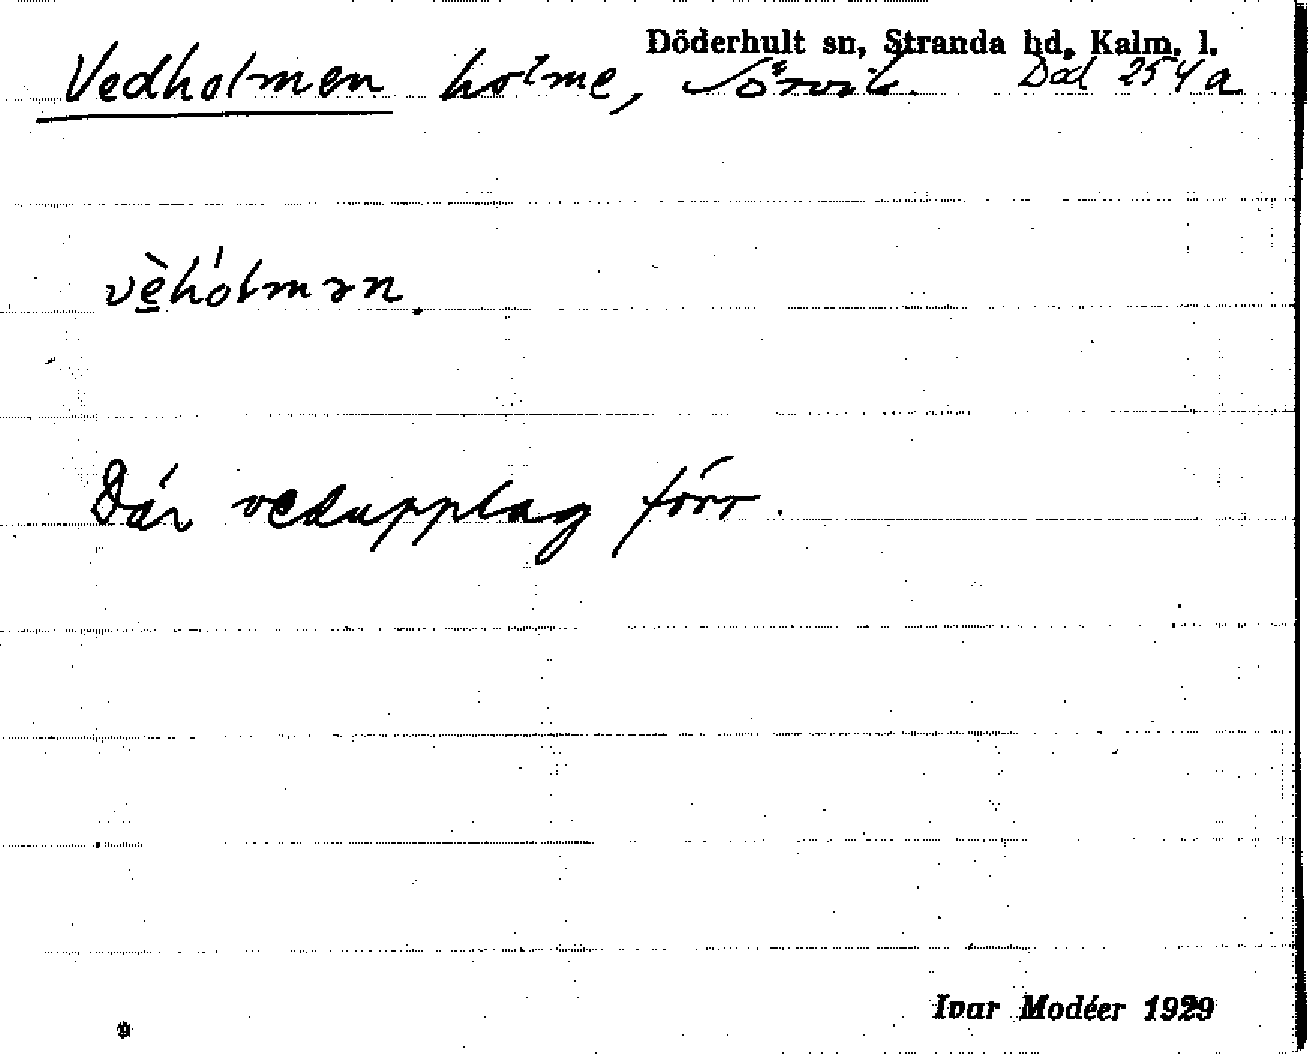 Döderhult sn, Stranda hd, Kalm. l.
Vedholmen holme, Sörvik. Död 254a
vèhólmən.
Där vedupplag förr.
Ivar Modéer 1929